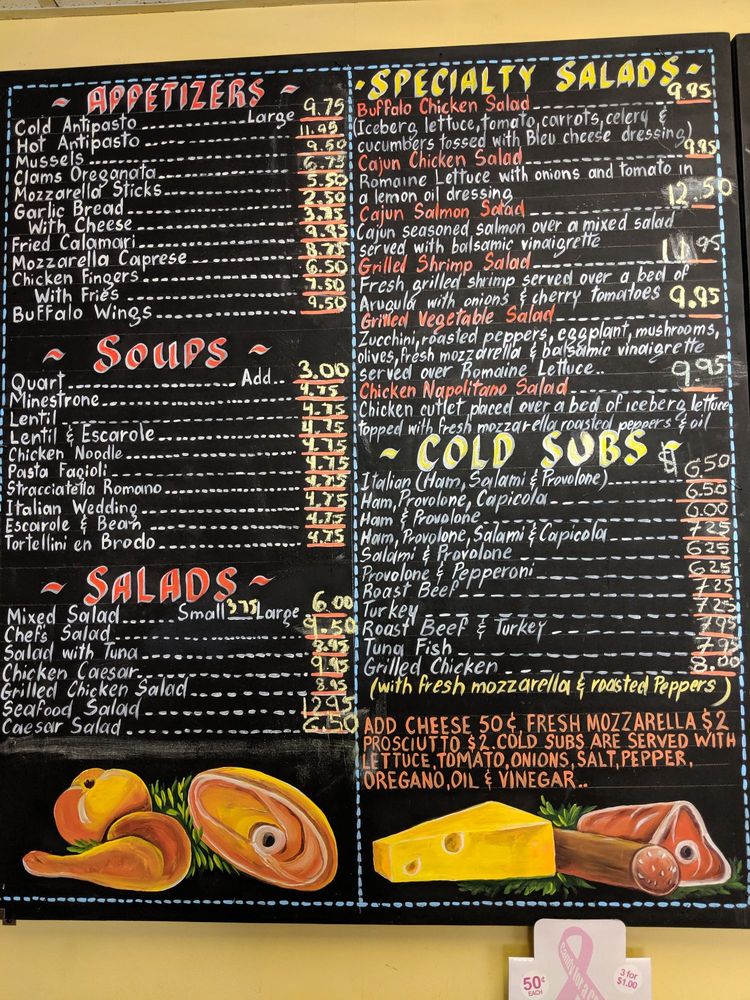 ~ APPETIZERS ~
Cold Antipasto Large 9.75
Hot Antipasto 11.95
Mussels 9.50
Clams Oreganata 6.75
Mozzarella Sticks 5.50
Garlic Bread 2.50
With Cheese
Fried Calamari 9.95
Mozzarella Caprese 8.75
Chicken Fingers 6.50
With Fries 7.50
Buffalo Wings 9.50
~ SOUPS ~
Quart Add.. 3.00
Minestrone 4.75
Lentil 4.75
Lentil & Escarole 4.75
Chicken Noodle 4.75
Pasta Fagioli 4.75
Stracciatella Romano 4.75
Italian Wedding 4.75
Escarole & Bean 4.75
Tortellini en Brodo 4.75
~ SALADS ~
Mixed Salad Small 3.75 Large 6.00
Chefs Salad
Salad with Tuna 8.95
Chicken Caesar 9.95
Grilled Chicken Salad 8.95
Seafood Salad 12.95
Caesar Salad 6.50
- SPECIALTY SALADS -
Buffalo Chicken Salad 9.95
(Iceberg lettuce, tomato, carrots, celery &
cucumbers tossed with Bleu cheese dressing)
Cajun Chicken Salad 9.95
Romaine Lettuce with onions and tomato in
a lemon oil dressing
Cajun Salmon Salad 12.50
Cajun seasoned salmon over a mixed salad
served with balsamic vinaigrette
Grilled Shrimp Salad 11.95
Fresh grilled shrimp served over a bed of
Arugula with onions & cherry tomatoes
Grilled Vegetable Salad 9.95
Zucchini, roasted peppers, eggplant, mushrooms,
olives, fresh mozzarella & balsamic vinaigrette
served over Romaine Lettuce..
Chicken Napolitano Salad 9.95
Chicken cutlet placed over a bed of iceberg lettuce
topped with fresh mozzarella roasted peppers & oil
- COLD SUBS -
Italian (Ham, Salami & Provolone) $6.50
Ham, Provolone, Capicola 6.50
Ham & Provolone 6.00
Ham, Provolone, Salami & Capicola 7.25
Salami & Provolone 6.25
Provolone & Pepperoni 6.25
Roast Beef 7.25
Turkey 7.25
Roast Beef & Turkey 7.95
Tuna Fish 7.95
Grilled Chicken 8.00
(with fresh mozzarella & roasted Peppers)
ADD CHEESE 50¢, FRESH MOZZARELLA $2
PROSCIUTTO $2. COLD SUBS ARE SERVED WITH
LETTUCE, TOMATO, ONIONS, SALT, PEPPER,
OREGANO, OIL & VINEGAR..
50¢
EACH
3 for
$1.00